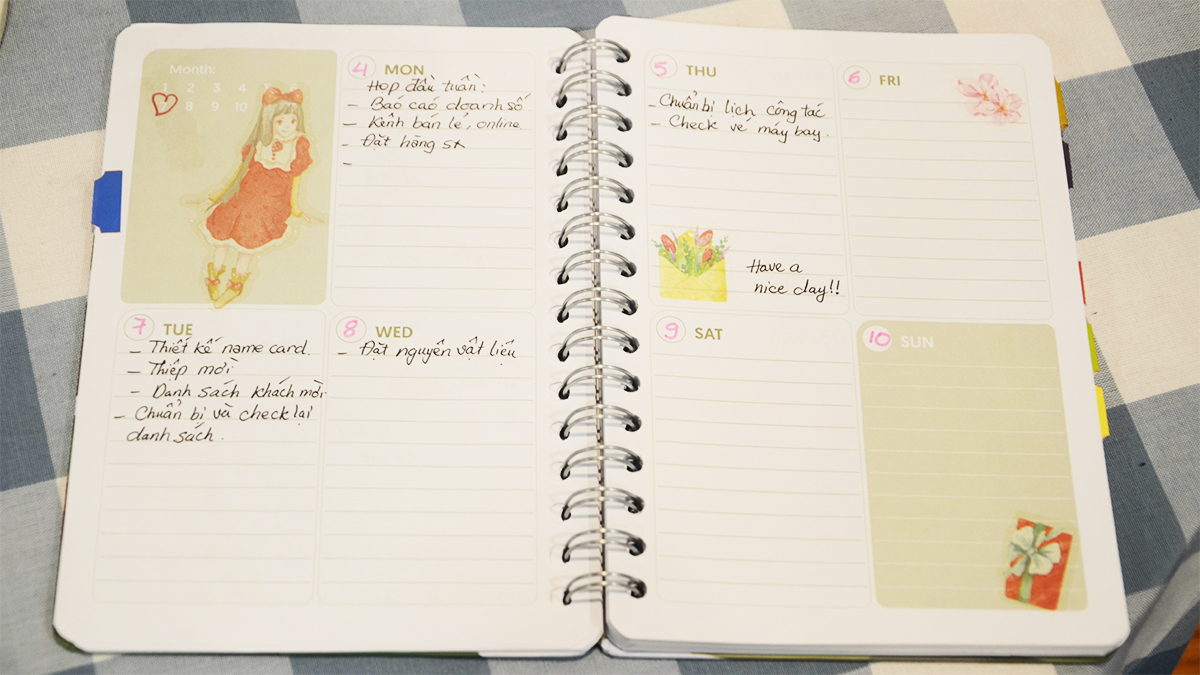 Month:
1 2 3 4
8 9 10
4 MON
Họp đầu tuần:
- Báo cáo doanh số
- Kênh bán lẻ, online.
- Đặt hàng sx
-
7 TUE
- Thiết kế name card.
- Thiệp mời
- Danh sách khách mời
- Chuẩn bị và check lại
danh sách.
8 WED
- Đặt nguyên vật liệu
5 THU
- Chuẩn bị lịch công tác
- Check vé máy bay.
Have a
nice day!!
6 FRI
9 SAT
10 SUN